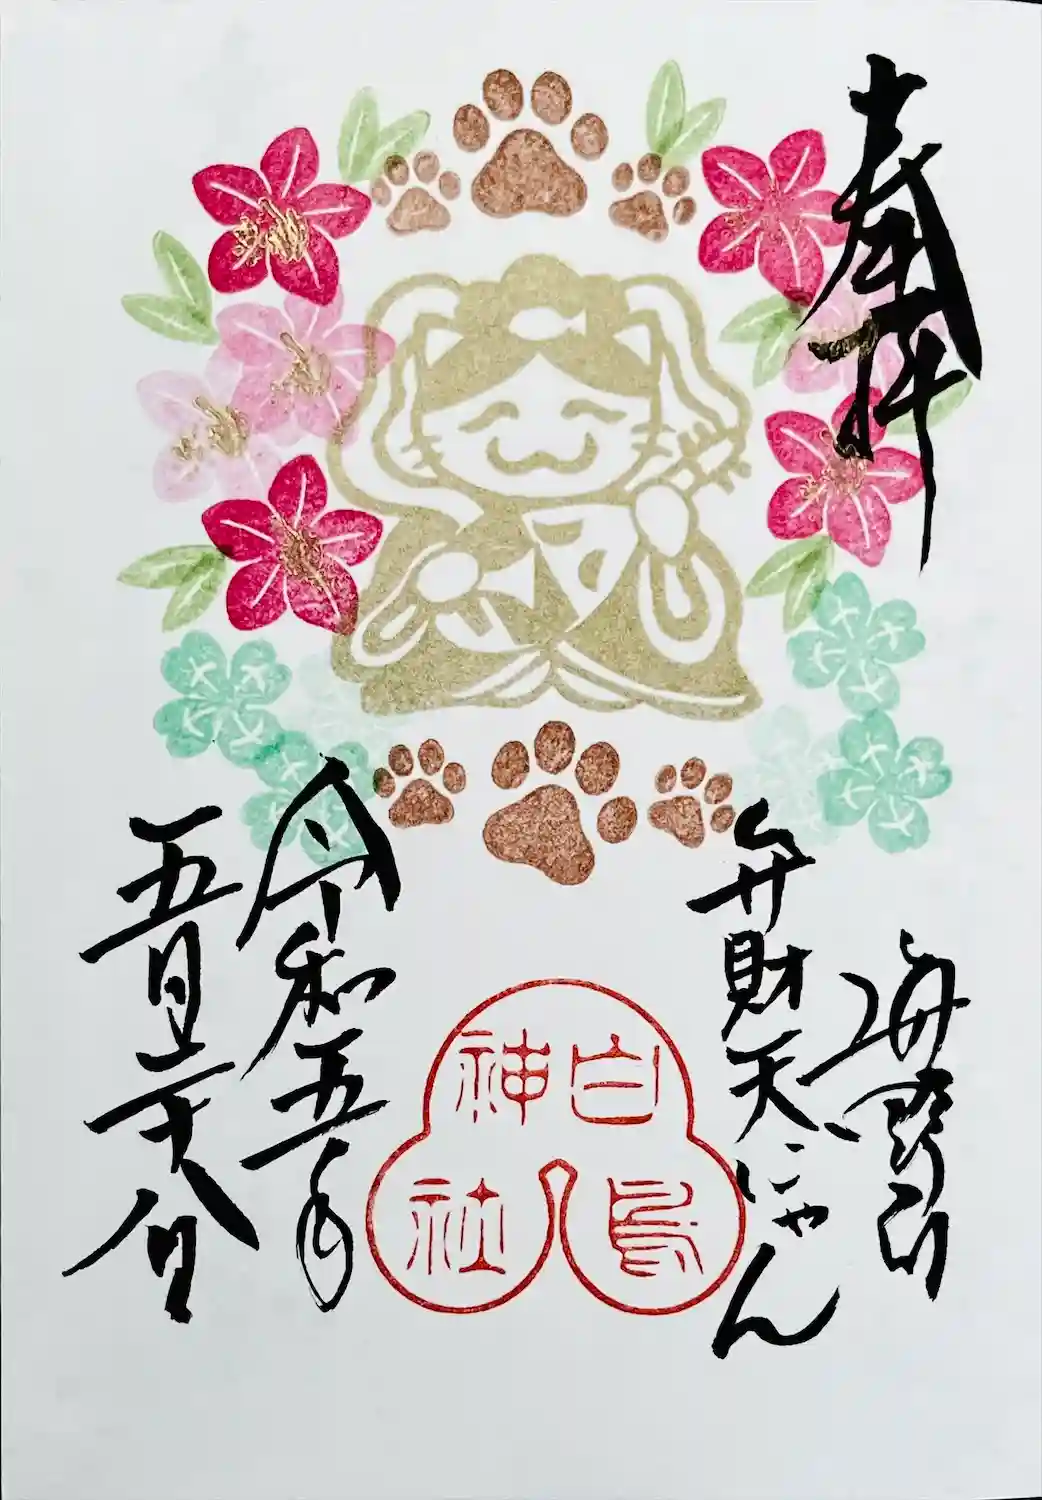 奉拝
海野郷
弁財天にゃん
白鳥
神社
令和五年
五月二十八日